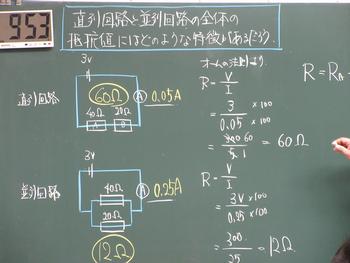 953
直列回路と並列回路の全体の
抵抗値にはどのような特徴があるだろう。
3V
60Ω
直列回路
A
0.05A
40Ω
20Ω
オームの法則より
R = V/I
= 3/0.05 ×100 ×100
= 300 60 / 5 1 = 60Ω
R = RA
3V
並列回路
A
0.25A
40Ω
20Ω
12Ω
R = V/I
= 3V/0.25 ×100 ×100
= 300/25 = 12Ω